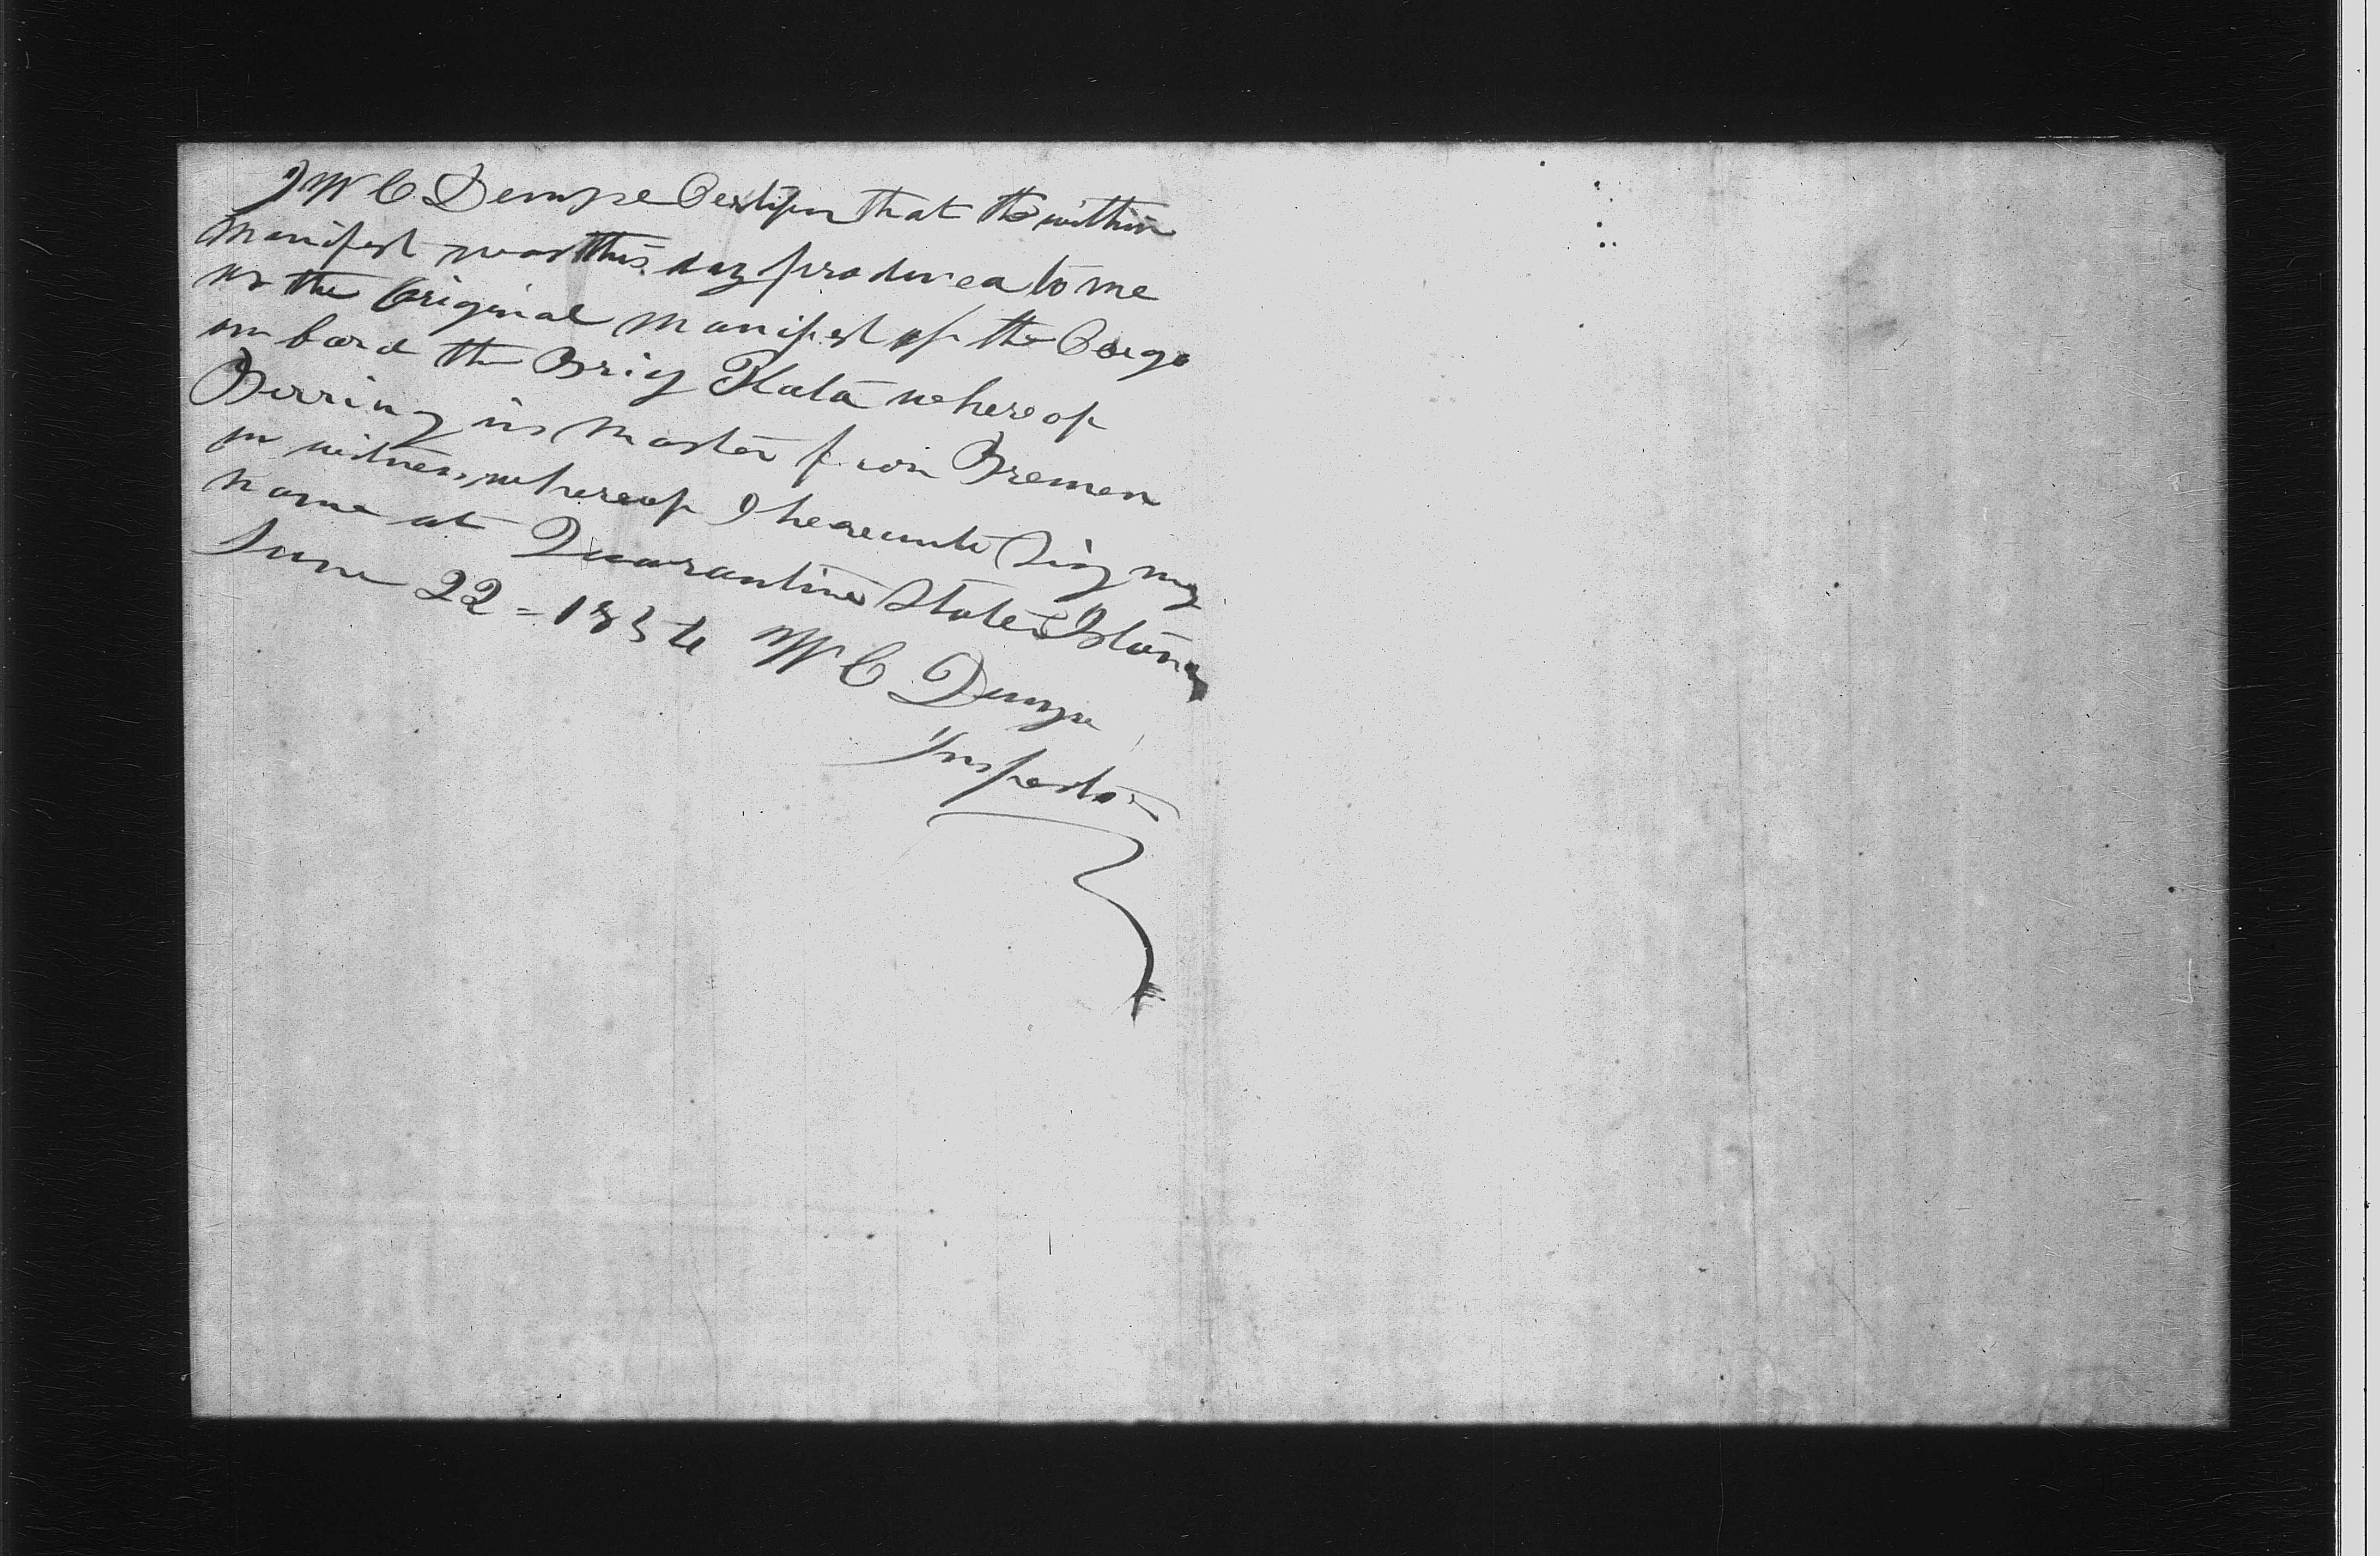 I W C Dempse Certify that the within
Manifest was this day produced to me
as the Original Manifest of the Cargo
on bord the Brig Plata whereof
Birring is Master from Bremen
in witness, whereof I hereunto Sing my
name at Quarantine Staten Island
June 22 = 1836 W C Dempse
Inspector